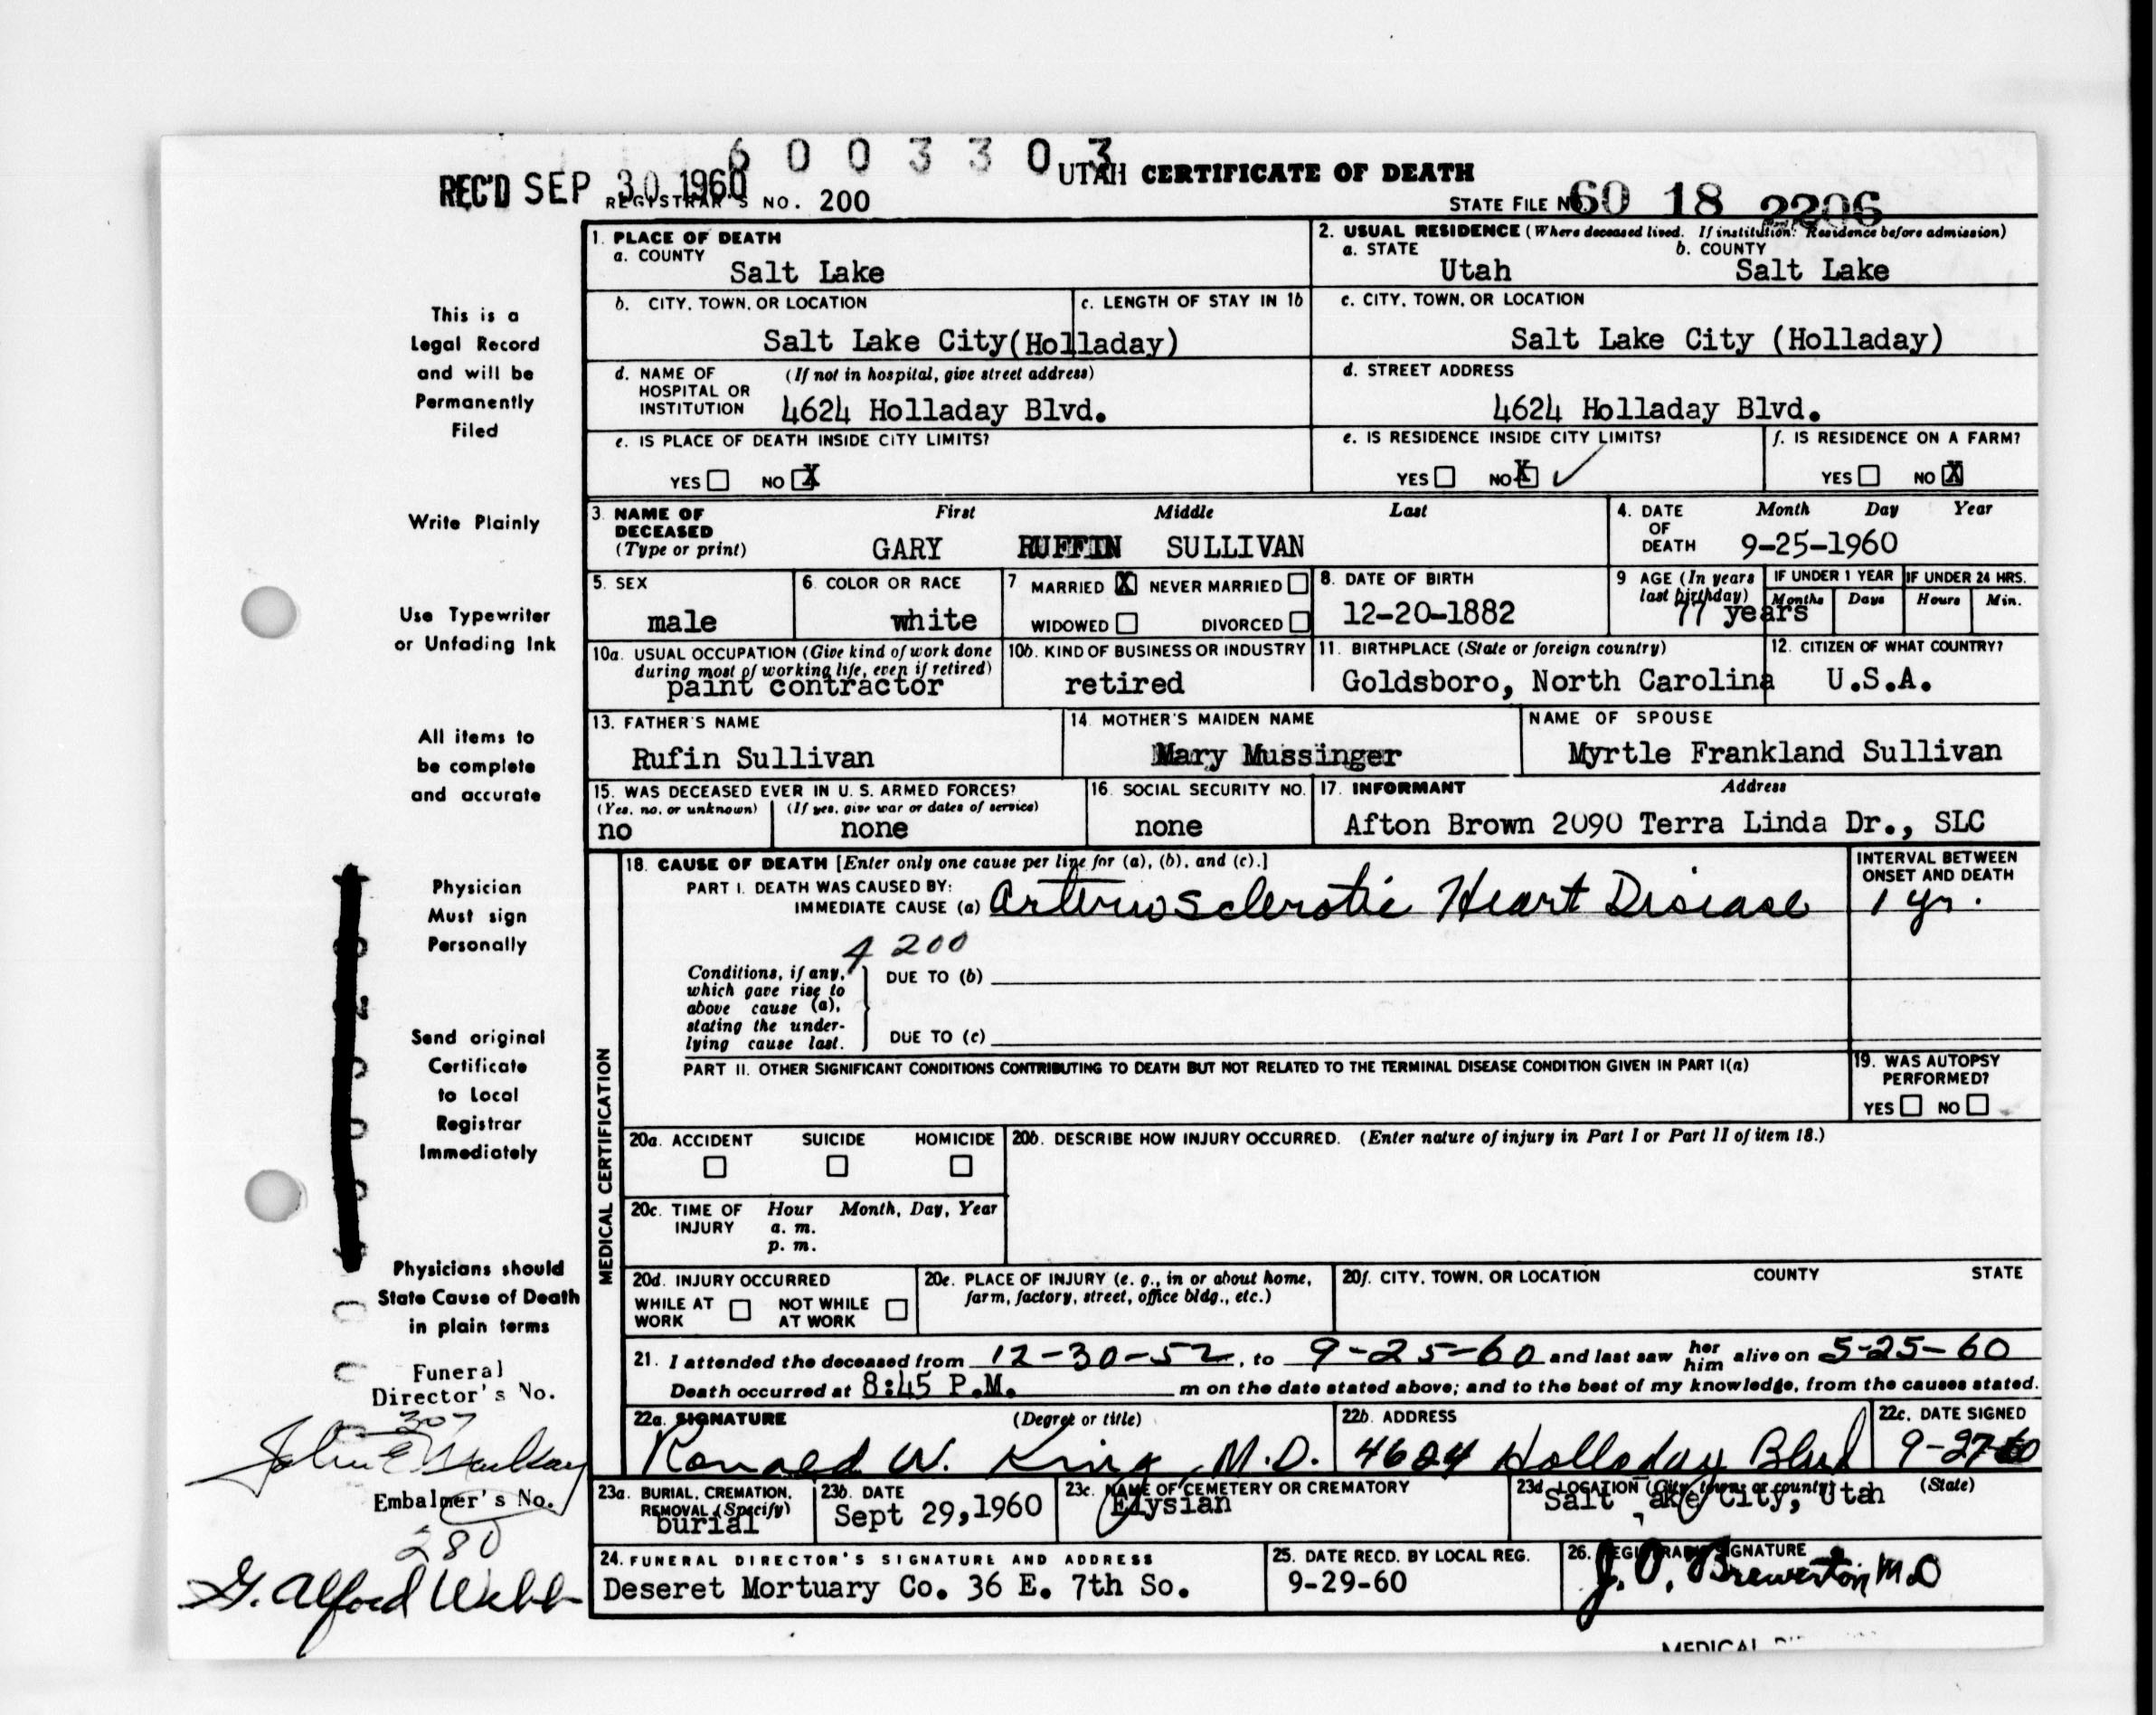 6 0 0 3 3 0 3
REC'D SEP 30 1960 REGISTRAR'S NO. 200 UTAH CERTIFICATE OF DEATH
STATE FILE NO. 60 18 2206
1. PLACE OF DEATH
a. COUNTY
Salt Lake
2. USUAL RESIDENCE (Where deceased lived. If institution: Residence before admission)
a. STATE b. COUNTY
Utah Salt Lake
b. CITY, TOWN, OR LOCATION c. LENGTH OF STAY IN 1b
Salt Lake City(Holladay)
c. CITY, TOWN, OR LOCATION
Salt Lake City (Holladay)
d. NAME OF HOSPITAL OR INSTITUTION (If not in hospital, give street address)
4624 Holladay Blvd.
d. STREET ADDRESS
4624 Holladay Blvd.
e. IS PLACE OF DEATH INSIDE CITY LIMITS?
YES NO X
e. IS RESIDENCE INSIDE CITY LIMITS?
YES NO X ✓
f. IS RESIDENCE ON A FARM?
YES NO X
3. NAME OF DECEASED (Type or print) First Middle Last
GARY RUFFIN SULLIVAN
4. DATE OF DEATH Month Day Year
9-25-1960
5. SEX
male
6. COLOR OR RACE
white
7 MARRIED X NEVER MARRIED
WIDOWED DIVORCED
8. DATE OF BIRTH
12-20-1882
9 AGE (In years last birthday)
77 years
IF UNDER 1 YEAR IF UNDER 24 HRS.
Months Days Hours Min.
10a. USUAL OCCUPATION (Give kind of work done during most of working life, even if retired)
paint contractor
10b. KIND OF BUSINESS OR INDUSTRY
retired
11. BIRTHPLACE (State or foreign country)
Goldsboro, North Carolina
12. CITIZEN OF WHAT COUNTRY?
U.S.A.
13. FATHER'S NAME
Rufin Sullivan
14. MOTHER'S MAIDEN NAME
Mary Mussinger
NAME OF SPOUSE
Myrtle Frankland Sullivan
15. WAS DECEASED EVER IN U. S. ARMED FORCES?
(Yes, no, or unknown) (If yes, give war or dates of service)
no none
16. SOCIAL SECURITY NO.
none
17. INFORMANT Address
Afton Brown 2090 Terra Linda Dr., SLC
MEDICAL CERTIFICATION
18. CAUSE OF DEATH [Enter only one cause per line for (a), (b), and (c).]
PART I. DEATH WAS CAUSED BY:
IMMEDIATE CAUSE (a) Arteriosclerotic Heart Disease
INTERVAL BETWEEN ONSET AND DEATH
1 yr.
4 200
Conditions, if any, which gave rise to above cause (a), stating the underlying cause last.
DUE TO (b)
DUE TO (c)
PART II. OTHER SIGNIFICANT CONDITIONS CONTRIBUTING TO DEATH BUT NOT RELATED TO THE TERMINAL DISEASE CONDITION GIVEN IN PART I(a)
19. WAS AUTOPSY PERFORMED?
YES NO
20a. ACCIDENT SUICIDE HOMICIDE
20b. DESCRIBE HOW INJURY OCCURRED. (Enter nature of injury in Part I or Part II of item 18.)
20c. TIME OF INJURY Hour Month, Day, Year
a. m.
p. m.
20d. INJURY OCCURRED
WHILE AT WORK NOT WHILE AT WORK
20e. PLACE OF INJURY (e. g., in or about home, farm, factory, street, office bldg., etc.)
20f. CITY, TOWN, OR LOCATION COUNTY STATE
21. I attended the deceased from 12-30-52, to 9-25-60 and last saw her him alive on 5-25-60
Death occurred at 8:45 P.M. m on the date stated above; and to the best of my knowledge, from the causes stated.
22a. SIGNATURE (Degree or title)
Ronald W. King, M.D.
22b. ADDRESS
4624 Holladay Blvd
22c. DATE SIGNED
9-27-60
23a. BURIAL, CREMATION, REMOVAL (Specify)
burial
23b. DATE
Sept 29,1960
23c. NAME OF CEMETERY OR CREMATORY
Elysian
23d LOCATION (City, town, or county) (State)
Salt Lake City, Utah
24. FUNERAL DIRECTOR'S SIGNATURE AND ADDRESS
Deseret Mortuary Co. 36 E. 7th So.
25. DATE RECD. BY LOCAL REG.
9-29-60
26. REGISTRAR'S SIGNATURE
J. O. Brewerton M.D
This is a
Legal Record
and will be
Permanently
Filed
Write Plainly
Use Typewriter
or Unfading Ink
All items to
be complete
and accurate
Physician
Must sign
Personally
Send original
Certificate
to Local
Registrar
Immediately
Physicians should
State Cause of Death
in plain terms
Funeral
Director's No.
307
Embalmer's No.
280
G. Alford Webb
MEDICAL